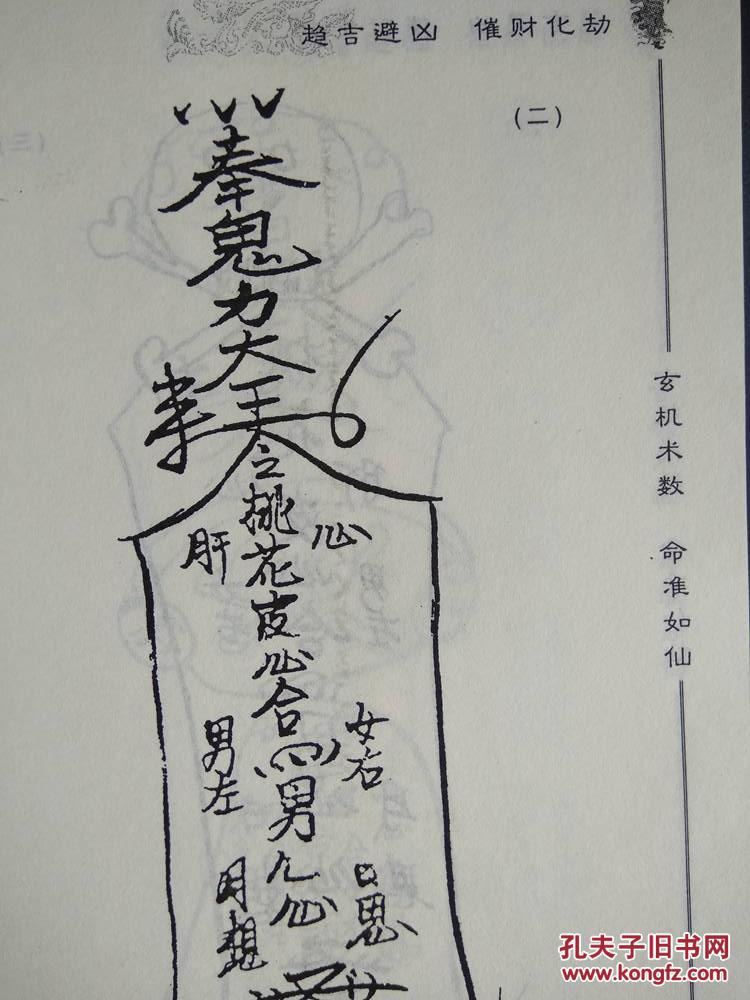 趋吉避凶 催财化劫
（二）
奉鬼力大王令桃花皮心合
肝
心
男左
女右
男
心
月想
日思
玄机术数 命准如仙
孔夫子旧书网
www.kongfz.com